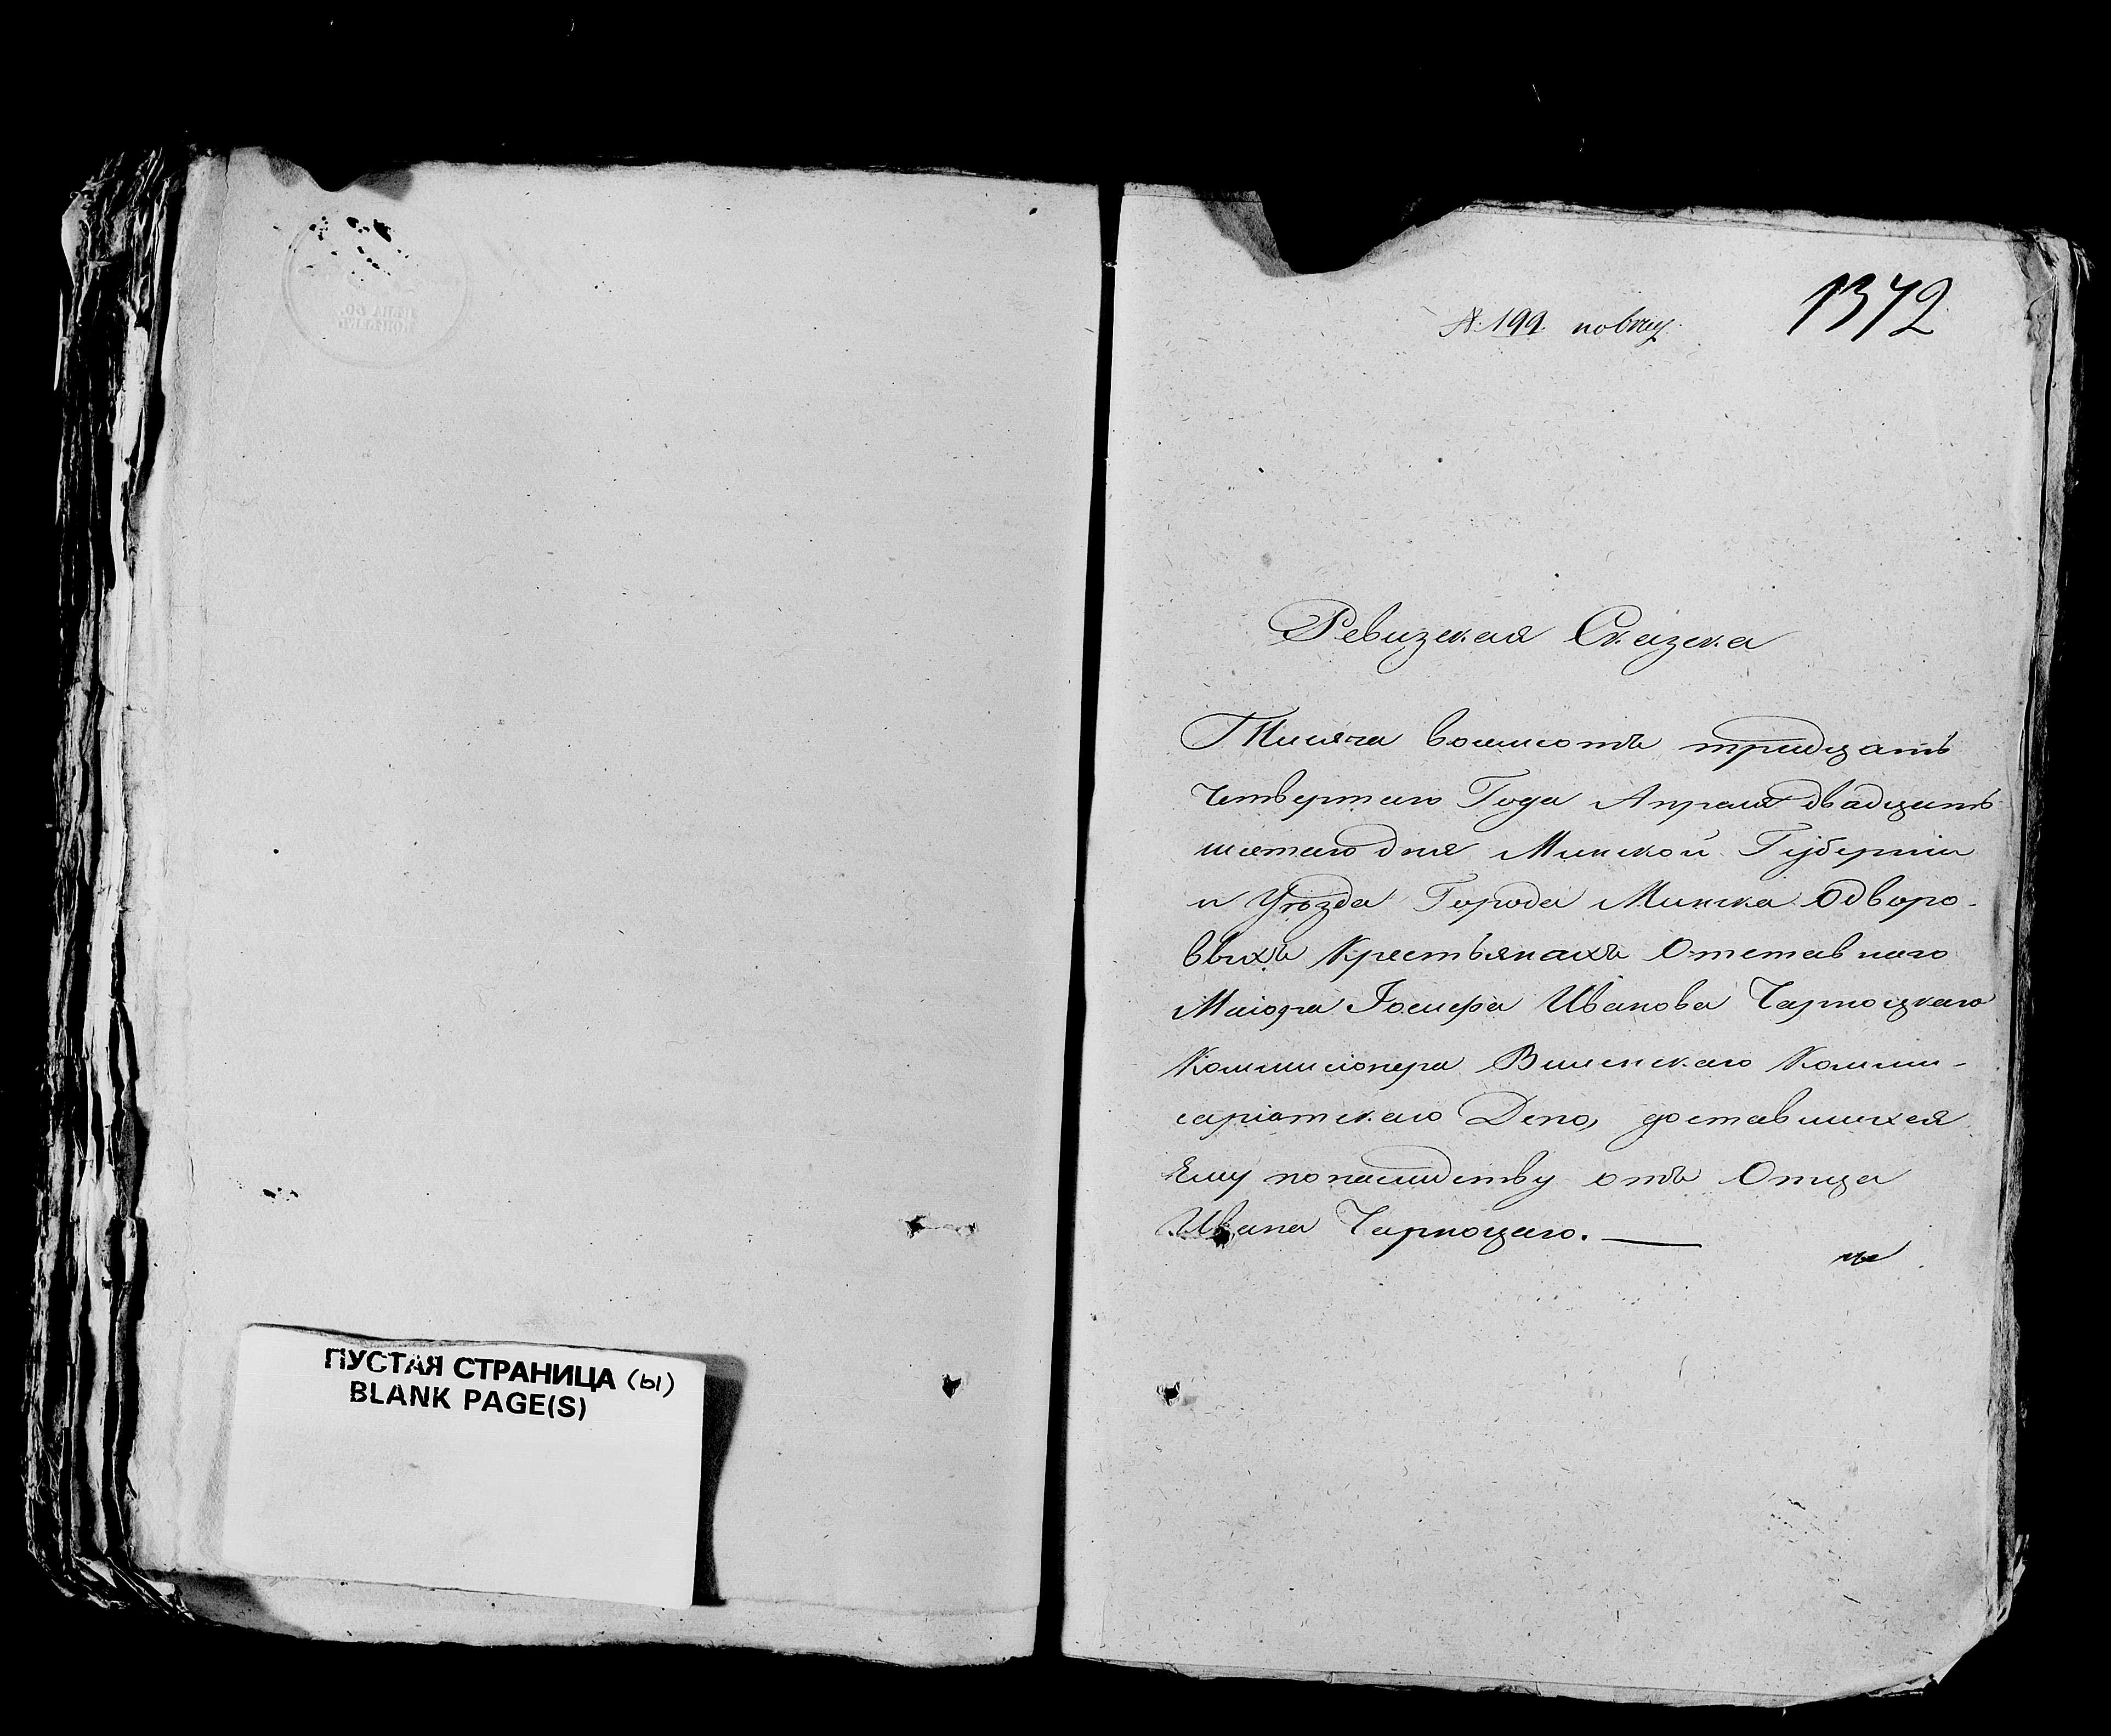 ЦЕНА 60.
КОПѢЕКЪ
ПУСТАЯ СТРАНИЦА (Ы)
BLANK PAGE(S)
№. 199.
1372
Ревизская Сказка
Тысяча восимсотъ тридцать
четвертаго Года Апреля двадцать
шестаго дня Минской Губерніи
и Уѣзда Города Минска Одворо-
выхъ Крестьянахъ Отставнаго
Маіора Іосифа Иванова Чарноцкаго
Коммисіонера Виленскаго Комми-
саріатскаго Депо, доставшихся
Ему понаслидству отъ Отца
Ивана Чарноцаго. —